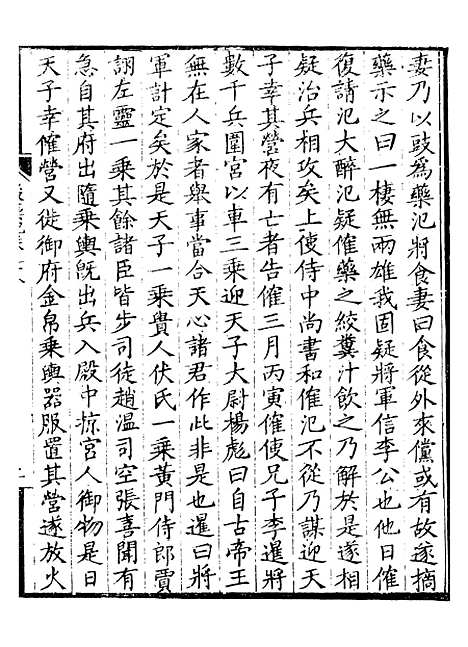 妻乃以豉爲藥汜將食妻曰食從外來儻或有故遂摘
藥示之曰一棲無兩雄我固疑將軍信李公也他日傕
復請汜大醉汜疑傕藥之絞糞汁飲之乃解於是遂相
疑治兵相攻矣上使侍中尚書和傕汜不從乃謀迎天
子幸其營夜有亡者告傕三月丙寅傕使兄子李暹將
數千兵圍宮以車三乘迎天子大尉楊彪曰自古帝王
無在人家者舉事當合天心諸君作此非是也暹曰將
軍計定矣於是天子一乘貴人伏氏一乘黃門侍郎賈
詡左靈一乘其餘諸臣皆步司徒趙溫司空張喜聞有
急自其府出隨乘輿旣出兵入殿中掠宮人御物是日
天子幸傕營又徙御府金帛乘輿器服置其營遂放火